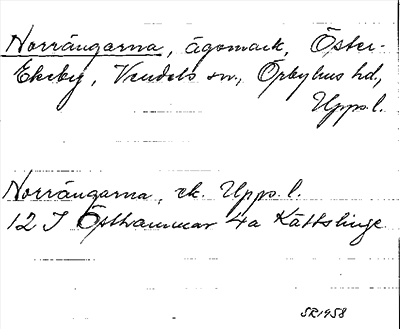 Norrängarna, ägomark, Öster-
Ekeby, Vendels sn, Örbyhus hd,
Upps. l.
Norrängarna, ek. Upps. l.
12 I Östhammar 4a Kättslinge
SR1958